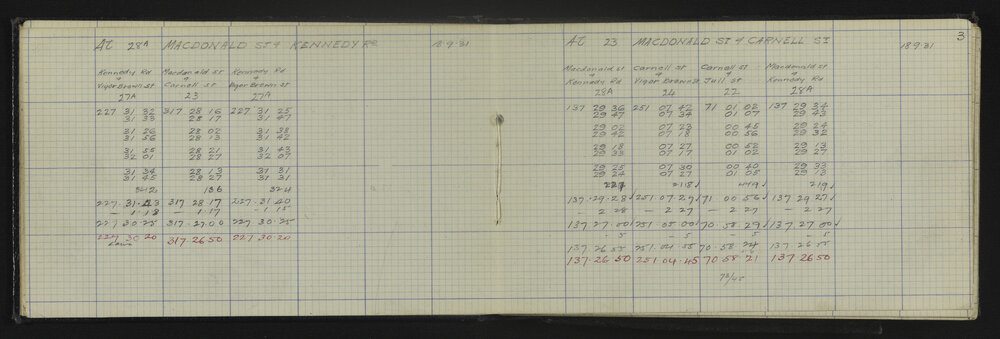 At 28A MACDONALD ST & KENNEDY RD 18.9.31
Kennedy Rd Macdonald St Kennedy Rd
& & &
Vigor Brown St Carnell St Vigor Brown St
27A 23 27A
227 31 32 317 28 16 227 31 25
31 33 28 17 31 47
31 26 28 02 31 38
31 56 28 13 31 42
31 55 28 21 31 43
32 01 28 27 32 07
31 34 28 13 31 31
31 45 28 27 31 31
342 136 324
227.31.43 317 28 17 227.31.40
- 1.18 - 1.17 - 1.15
227 30.25 317.27.00 227.30.25
227 30 20 317.26 50 227 30 20
3
At 23 MACDONALD ST & CARNELL ST 18.9.31
Macdonald St Carnell St Carnell St Macdonald St
& & & &
Kennedy Rd Vigor Brown St Jull St Kennedy Rd
28A 24 22 28A
137 29 36 251 07 42 71 01 02 137 29 34
29 47 07 34 01 07 29 43
29 02 07 23 00 45 29 24
29 42 07 18 00 56 29 32
29 18 07 27 00 52 29 13
29 33 07 17 01 02 29 27
29 25 07 30 00 40 29 33
29 24 07 27 01 05 29 13
227 218 449 219
137.29.28 251 07.27 71 00 56 137 29 27
- 2 28 - 2 27 - 2 27 - 2 27
137 27.00 251 05 00 70.58 29 137.27 00
- 5 - 5 - 5 - 5
137 26 55 251.04 55 70.58.24 137 26 55
137.26 50 251 04.45 70 58 21 137 26 50